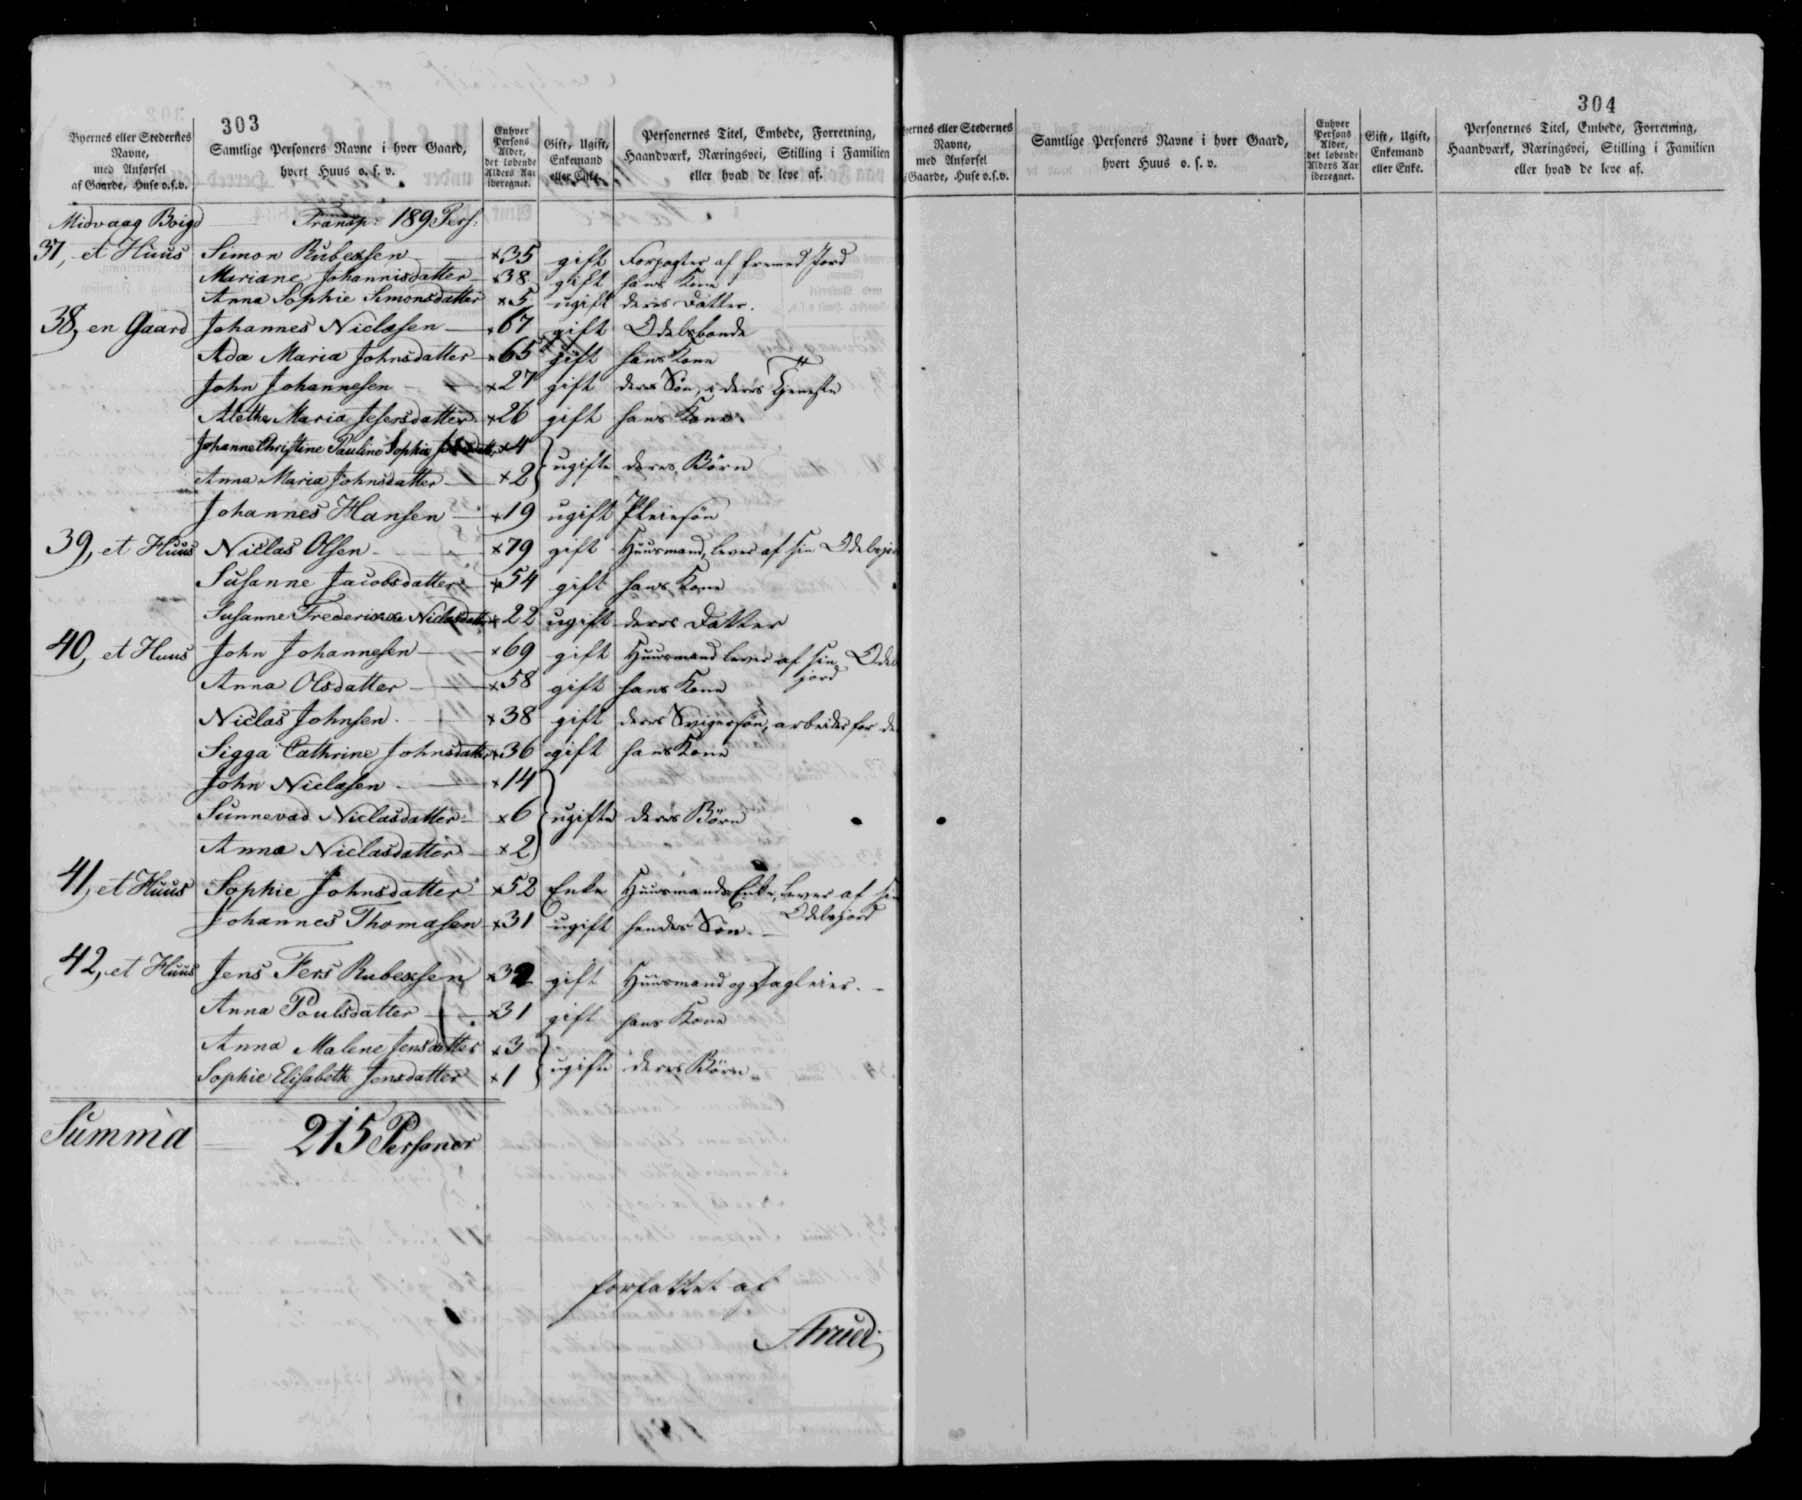 303
Byernes eller Stedernes Navne, med Anførsel af Gaarde, Huse o.s.v.
Samtlige Personers Navne i hver Gaard, hvert Huus o. s. v.
Enhver Persons Alder, det løbende Alders Aar iberegnet.
Gift, Ugift, Enkemand eller Enke.
Personernes Titel, Embede, Forretning, Haandværk, Næringsvei, Stilling i Familien eller hvad de leve af.
Midvaag Boigd Transp: 189 Pers:
37, et Huus Simon Rubeksen ×35 gift Forpagter af fremed Jord
Mariane Johannisdatter ×38 gift hans Kone
Anna Sophie Simonsdatter ×5 ugift deres Datter.
38, en Gaard Johannes Niclasen ×67 gift Odelsbonde
Ada Maria Johnsdatter ×65 gift hans Kone
John Johannesen ×27 gift deres Søn, i deres Tjeneste
Alethe Maria Jesersdatter ×26 gift hans Kone
Johanne Christine Pauline Sophie ×4
Anna Maria Johnsdatter ×2 } ugifte deres Børn
Johannes Hansen ×19 ugift Pleiesøn
39, et Huus Niclas Olsen ×79 gift Huusmand, lever af sin
Susanne Jacobsdatter ×54 gift hans Kone
Susanne Fredericke Niclasdatter ×22 ugift deres Datter
40, et Huus John Johannesen ×69 gift Huusmand lever af sin Odels
jord
Anna Olsdatter ×58 gift hans Kone
Niclas Johnsen ×38 gift deres Svigersøn, arbeider for de
Sigga Cathrine Johnsdatter ×36 gift hans Kone
John Niclasen ×14
Sunnevad Niclasdatter ×6 } ugifte deres Børn
Anna Niclasdatter ×2
41, et Huus Sophie Johnsdatter ×52 Enke Huusmands Enke, lever af sin
Odelsjord
Johannes Thomasen ×31 ugift hendes Søn.
42, et Huus Jens Fers Rubeksen ×32 gift Huusmand og Dagleier.
Anna Poulsdatter ×31 gift hans Kone
Anna Malene Jensdatter ×3
Sophie Elisabeth Jensdatter ×1 } ugifte deres Børn
Summa 215 Personer
forfattet af
304
Byernes eller Stedernes Navne, med Anførsel Gaarde, Huse o.s.v.
Samtlige Personers Navne i hver Gaard, hvert Huus o. s. v.
Enhver Persons Alder, det løbende Alders Aar iberegnet.
Gift, Ugift, Enkemand eller Enke.
Personernes Titel, Embede, Forretning, Haandværk, Næringsvei, Stilling i Familien eller hvad de leve af.